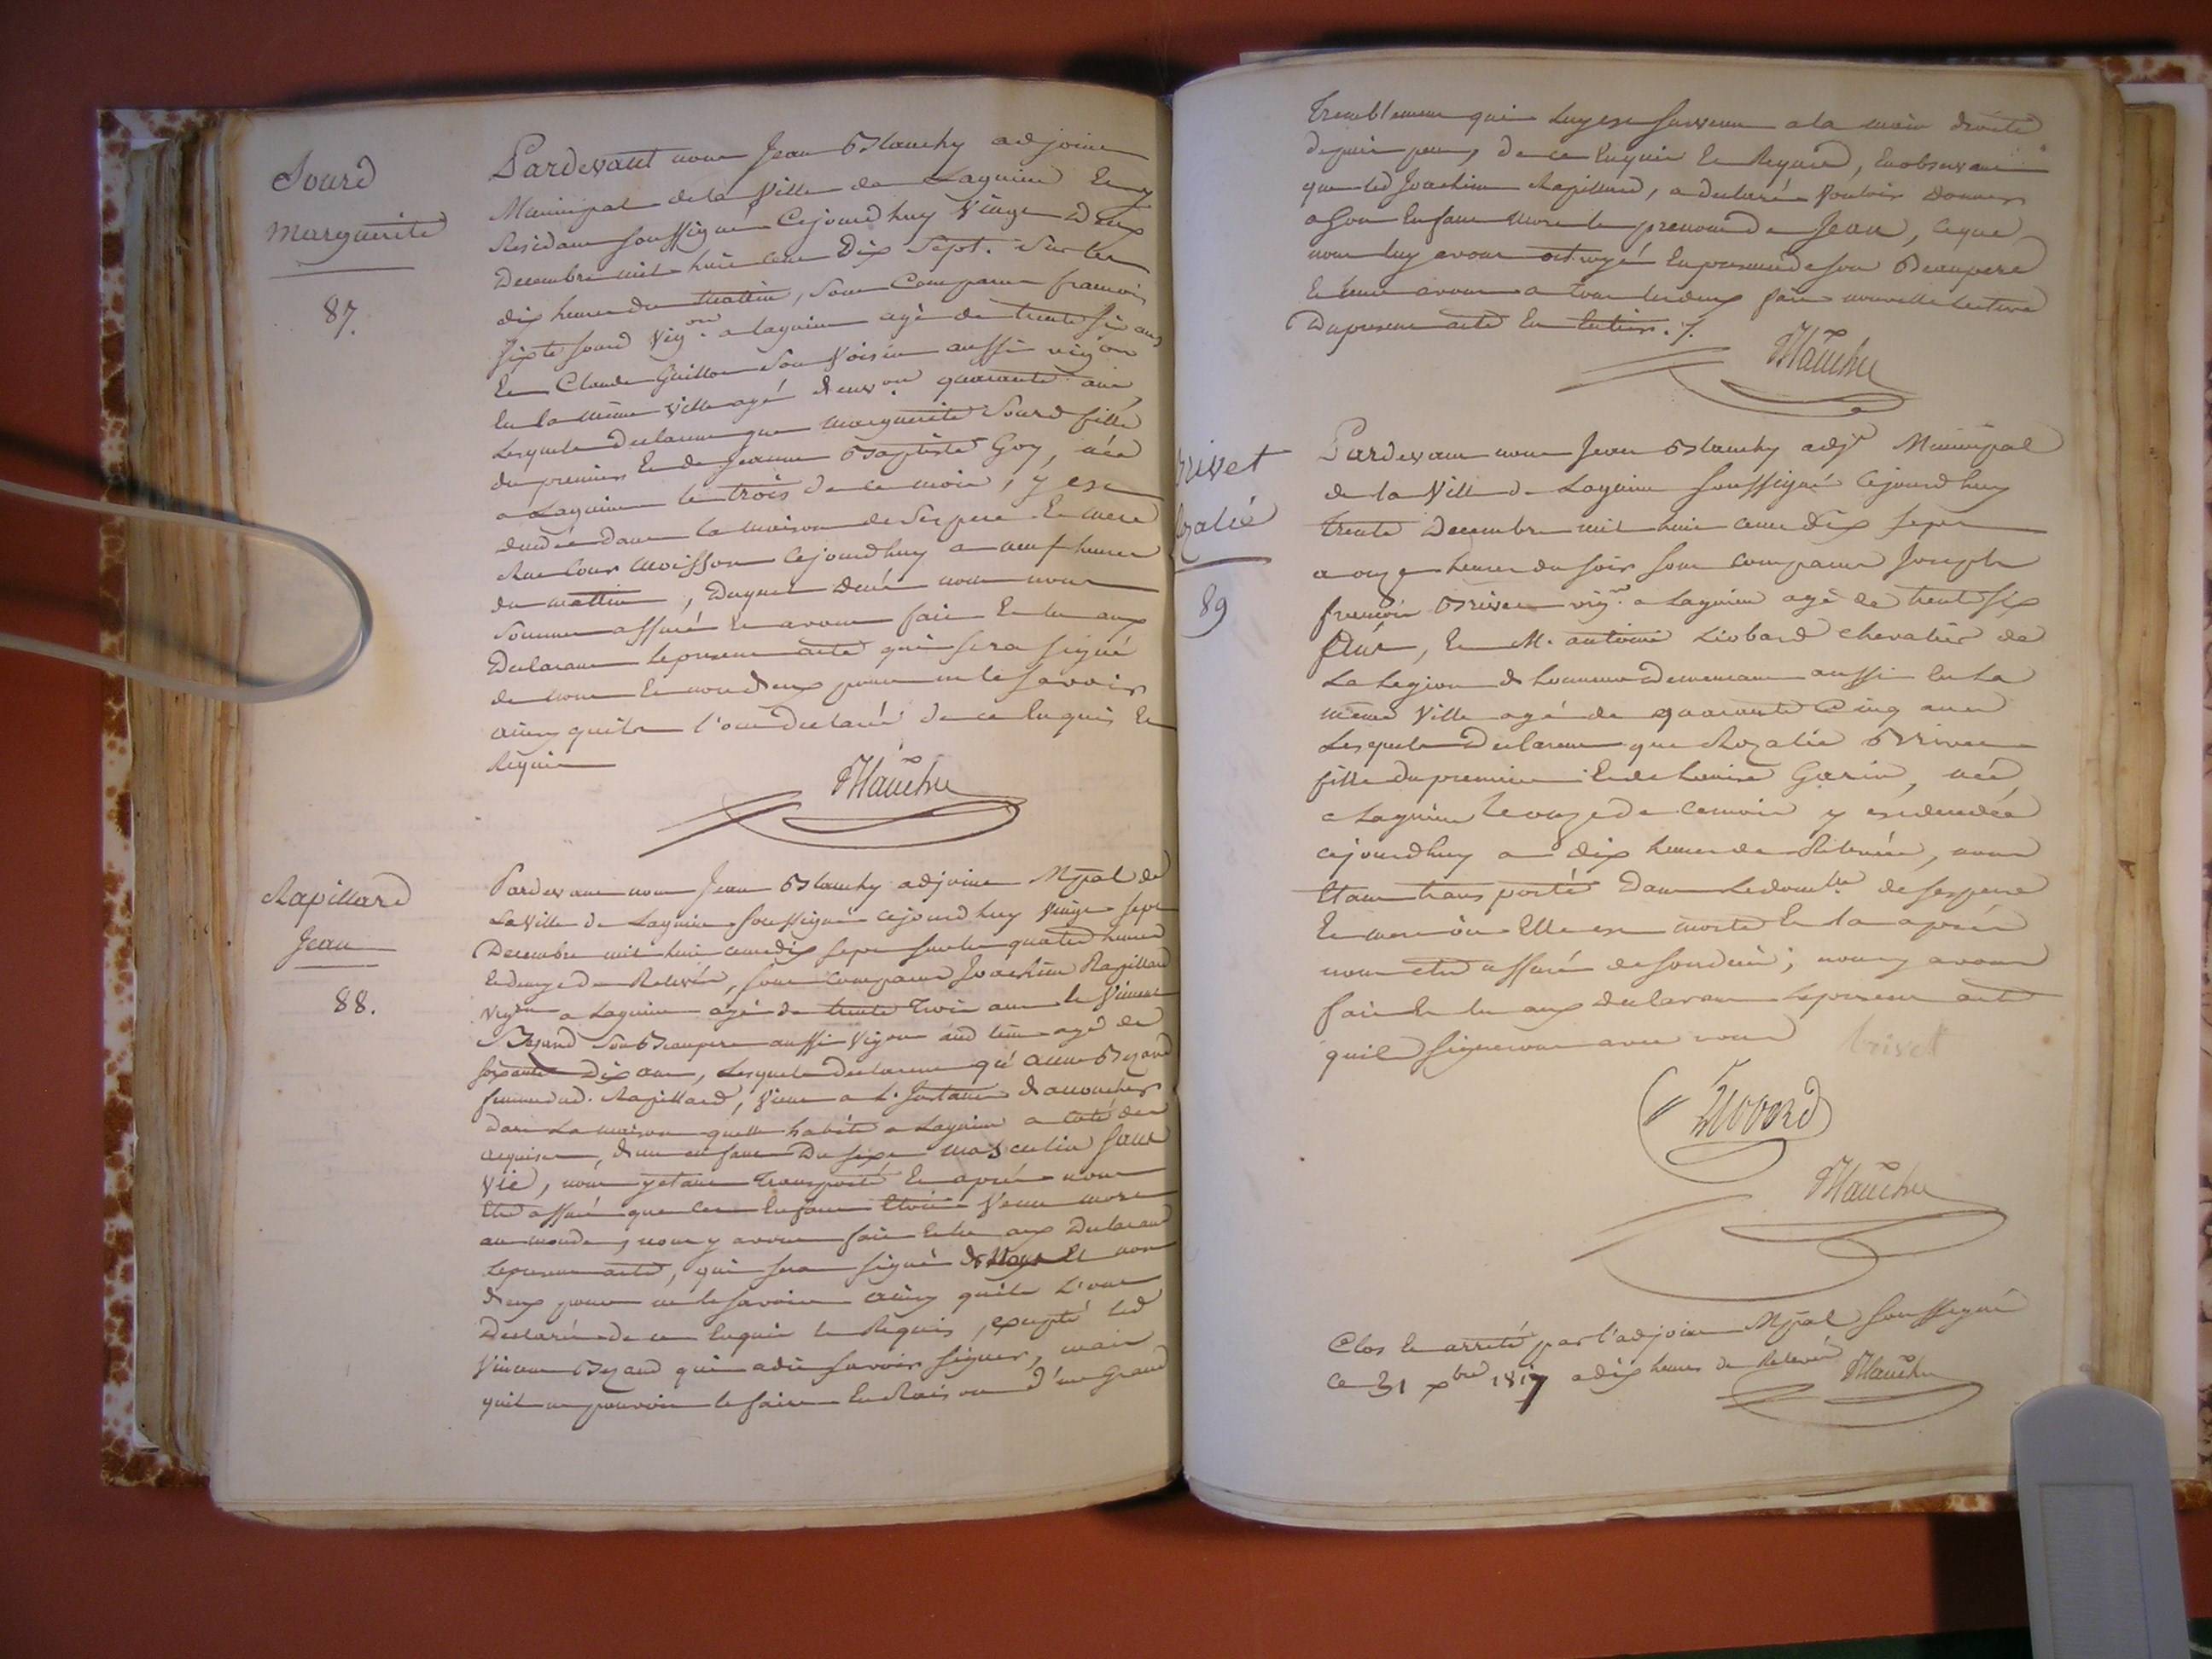 Sourd
Marguerite
87.
Pardevant nous Jean Blanchy adjoint
Municipal de la Ville de Lagnieu En y
Residant soussigné Cejourdhuy Vingt Deux
Decembre mil huit cent Dix Sept. Sur les
dix heures du mattin, sont Comparus francois
Sixte sourd Vig.on a lagnieu agé de trente six ans
Et Claude Guillon son Voisin aussi vig'on
En la même Ville agé d'env.on quarante ans,
Lesquels Declarent que Marguerite Sourd fille
du premier Et de Jeanne Baptiste Goy, née
a Lagnieu le trois de ce mois, y est
decedée dans la maison de Ses pere Et mere
Rue Cour cejourdhuy a neuf heures
du mattin, Duquel decés nous nous
Sommes assuré Et avons fait Et lu aux
Declarants le present acte qui sera signé
de nous Et non d'eux pour ne le savoir
ainsy quils l'ont Declaré de ce Enquis Et
Requis
Blanchy
Rapillard
Jean
88.
Pardevant nous Jean Blanchy adjoint M'pal de
La Ville de Lagnieu soussigné cejourdhuy Vingt sept
Decembre mil huit cent dix sept sur les quatre heures
de Relevée, sont comparus Joachim Rapillard
Vig'on a Lagnieu agé de trente trois ans Et Vincent
Bezand son Beaupere aussi Vig'on aud lieu agé de
soixante Dix ans, Lesquels Declarent qu'anne Bezand
femme dud. Rapillard, Vient a L'instant d'accoucher
dans La maison quelle habite a Lagnieu a coté des
, d'un enfant Du sexe masculin sans
Vie, nous y etant transporté Et aprés nous
etre assuré que cet Enfant etoit Venu mort
au monde, nous y avons fait Et lu aux Declarants
le present acte, qui sera signé de Nous Et non
d'eux pour ne le savoir ainsy quils L'ont
Declaré de ce Enquis Et Requis, excepté led
Vincent Bezand qui a dit savoir signer, mais
quil ne pouvoit le faire En Raison d'un Grand
Tremblement qui Luy est survenu a la main droite
depuis peu, de ce Enquis Et Requis, En observant
que led Joachim Rapillard, a declaré Vouloir donner
a son Enfant mort le prenom de Jean, ce que
nous luy avons octroyé En presence de son Beaupere
Et leur avons a tous les deux fait nouvelle lecture
Du present acte En Entier. /.
Blanchy
Brivet
Rozalie
89
Pardevant nous Jean Blanchy adj.t Municipal
de la Ville de Lagnieu soussigné Cejourdhuy
trente Decembre mil huit cent dix sept
a onze heures du soir sont comparus Joseph
francois Brivet vig.on a Lagnieu agé de trente six
ans, Et M. antoine Liobard Chevalier de
La Legion d'honneur demeurant aussi En La
même Ville agé de quarante Cinq ans
Lesquels Declarent que Rozalie Brivet
fille du premier Et de Louise Garin, née
a Lagnieu le onze de ce mois y est decedée
cejourdhuy a dix heures de Relevée, nous
étant transporté Dans Le domlle de ses pere
Et mere où Elle est morte Et la aprés
nous etre assuré de son decés; nous y avons
fait Et lu aux declarants le present acte
quils signeront avec nous brivet
Liobard
Blanchy
Clos Et arreté par l'adjoint M'pal soussigné
Ce 31 xbre 1817 a dix heures de Relevée
Blanchy